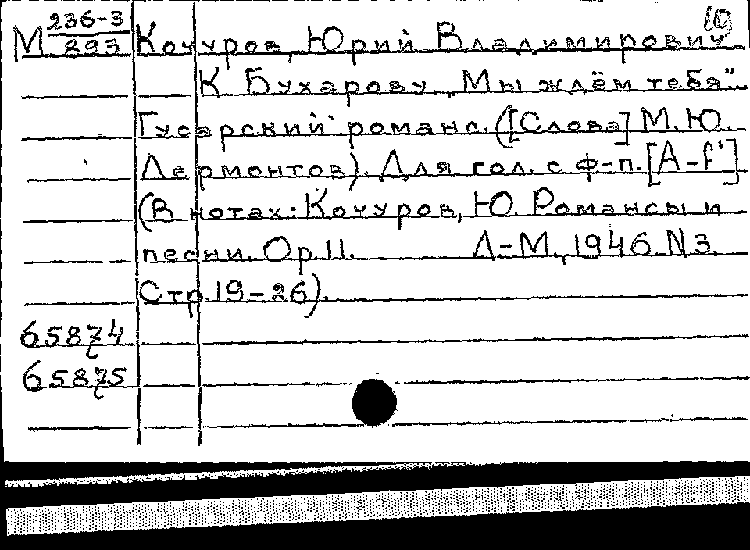 10
М 236-3/893 Кочуров, Юрий Владимирович
К Бухарову „Мы ждём тебя".
Гусарский романс. ([Слова] М. Ю.
Лермонтов). Для гол. с ф-п. [A-f']
(В нотах: Кочуров, Ю. Романсы и
песни. Ор. 11. Л-М., 1946. N3.
Стр. 19-26).
65874
65875